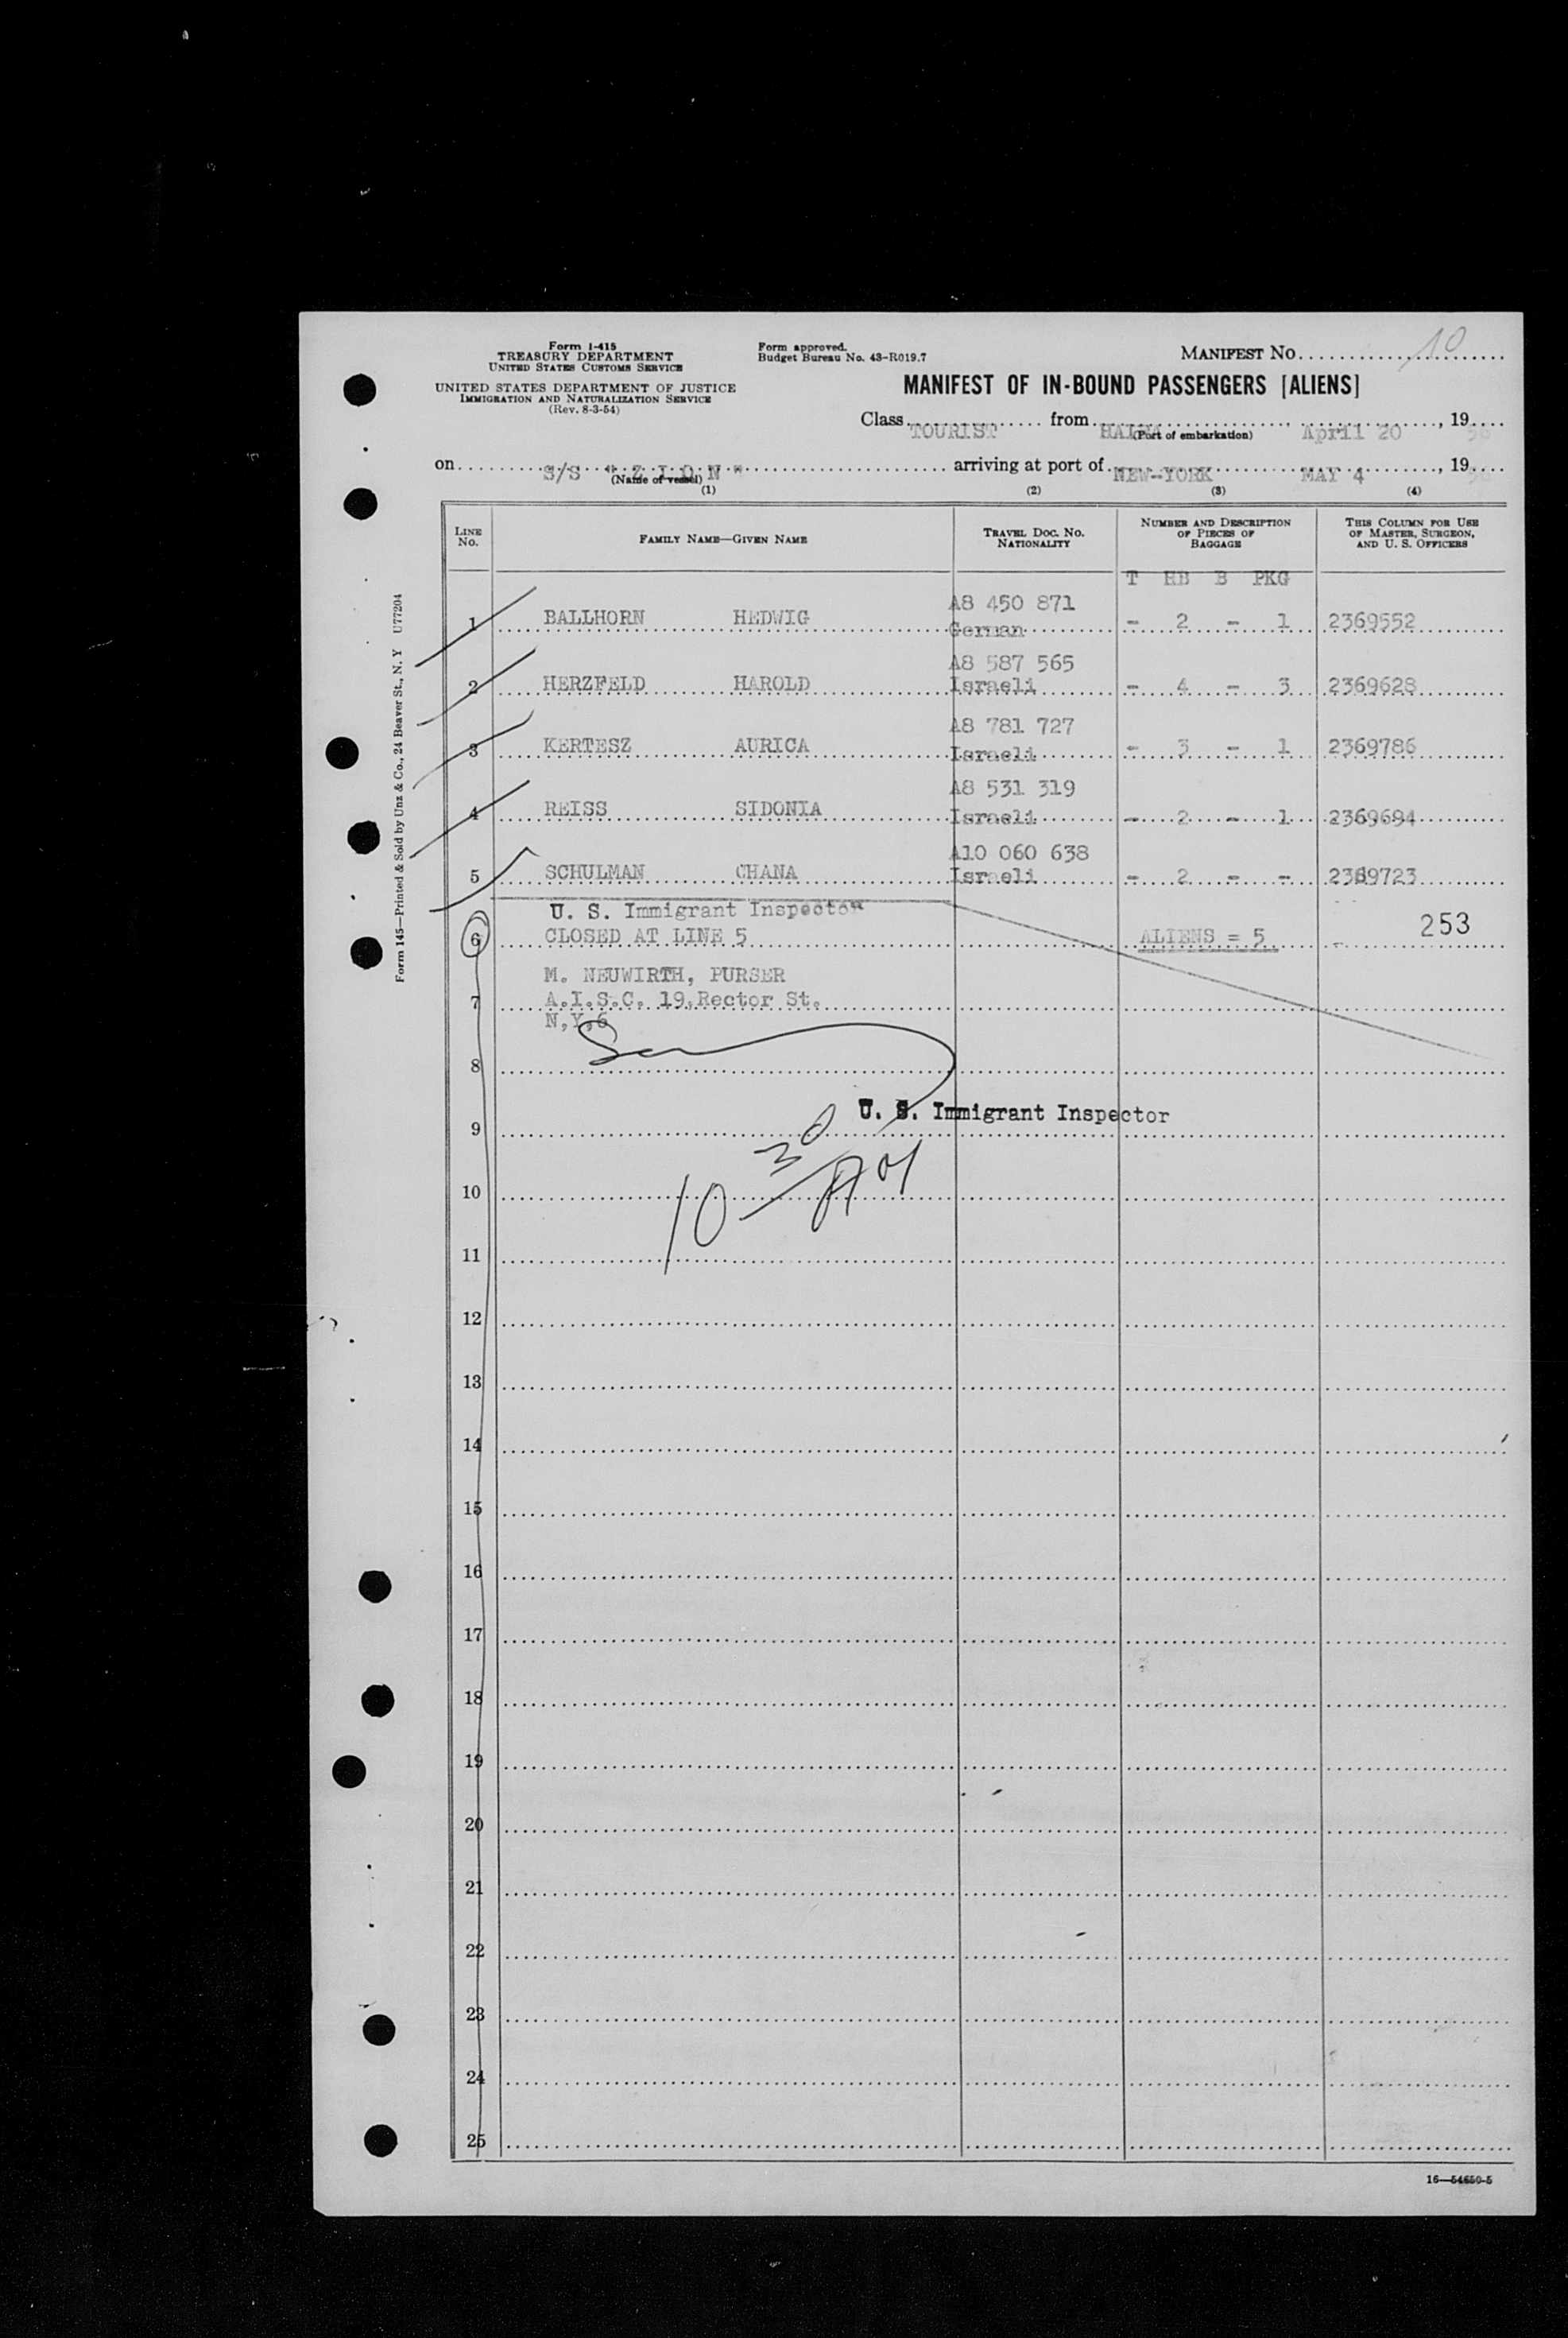 Form I-415
TREASURY DEPARTMENT
UNITED STATES CUSTOMS SERVICE
UNITED STATES DEPARTMENT OF JUSTICE
IMMIGRATION AND NATURALIZATION SERVICE
(Rev. 8-3-54)
Form approved.
Budget Bureau No. 43-R019.7
MANIFEST NO. 10
MANIFEST OF IN-BOUND PASSENGERS [ALIENS]
Class TOURIST from HAIFA April 20, 1956
(Port of embarkation)
on S/S "Z I O N" arriving at port of NEW-YORK MAY 4, 1956
(Name of vessel)
(1) (2) (3) (4)
LINE NO. FAMILY NAME—GIVEN NAME TRAVEL DOC. NO. NATIONALITY NUMBER AND DESCRIPTION OF PIECES OF BAGGAGE THIS COLUMN FOR USE OF MASTER, SURGEON, AND U. S. OFFICERS
T HB B PKG
A8 450 871
1 BALLHORN HEDWIG German - 2 - 1 2369552
A8 587 565
2 HERZFELD HAROLD Israeli - 4 - 3 2369628
A8 781 727
3 KERTESZ AURICA Israeli - 3 - 1 2369786
A8 531 319
4 REISS SIDONIA Israeli - 2 - 1 2369694
A10 060 638
5 SCHULMAN CHANA Israeli - 2 - - 2369723
U. S. Immigrant Inspector
6 CLOSED AT LINE 5 ALIENS = 5 253
M. NEUWIRTH, PURSER
7 A.I.S.C. 19,Rector St.
N,Y,6
8
U. S. Immigrant Inspector
9
10 30 AM
10
11
12
13
14
15
16
17
18
19
20
21
22
23
24
25
16—54650-5
Form 145—Printed & Sold by Unz & Co., 24 Beaver St., N. Y U77204